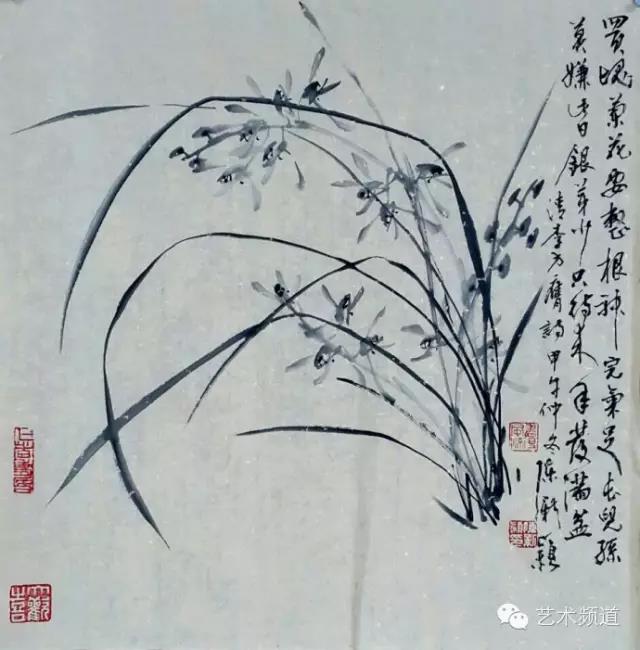 買塊蘭花要整根神完氣足長兒孫
莫嫌此日銀芽少只待来年發滿盆
清李方膺詩甲午仲冬陳新
艺术频道